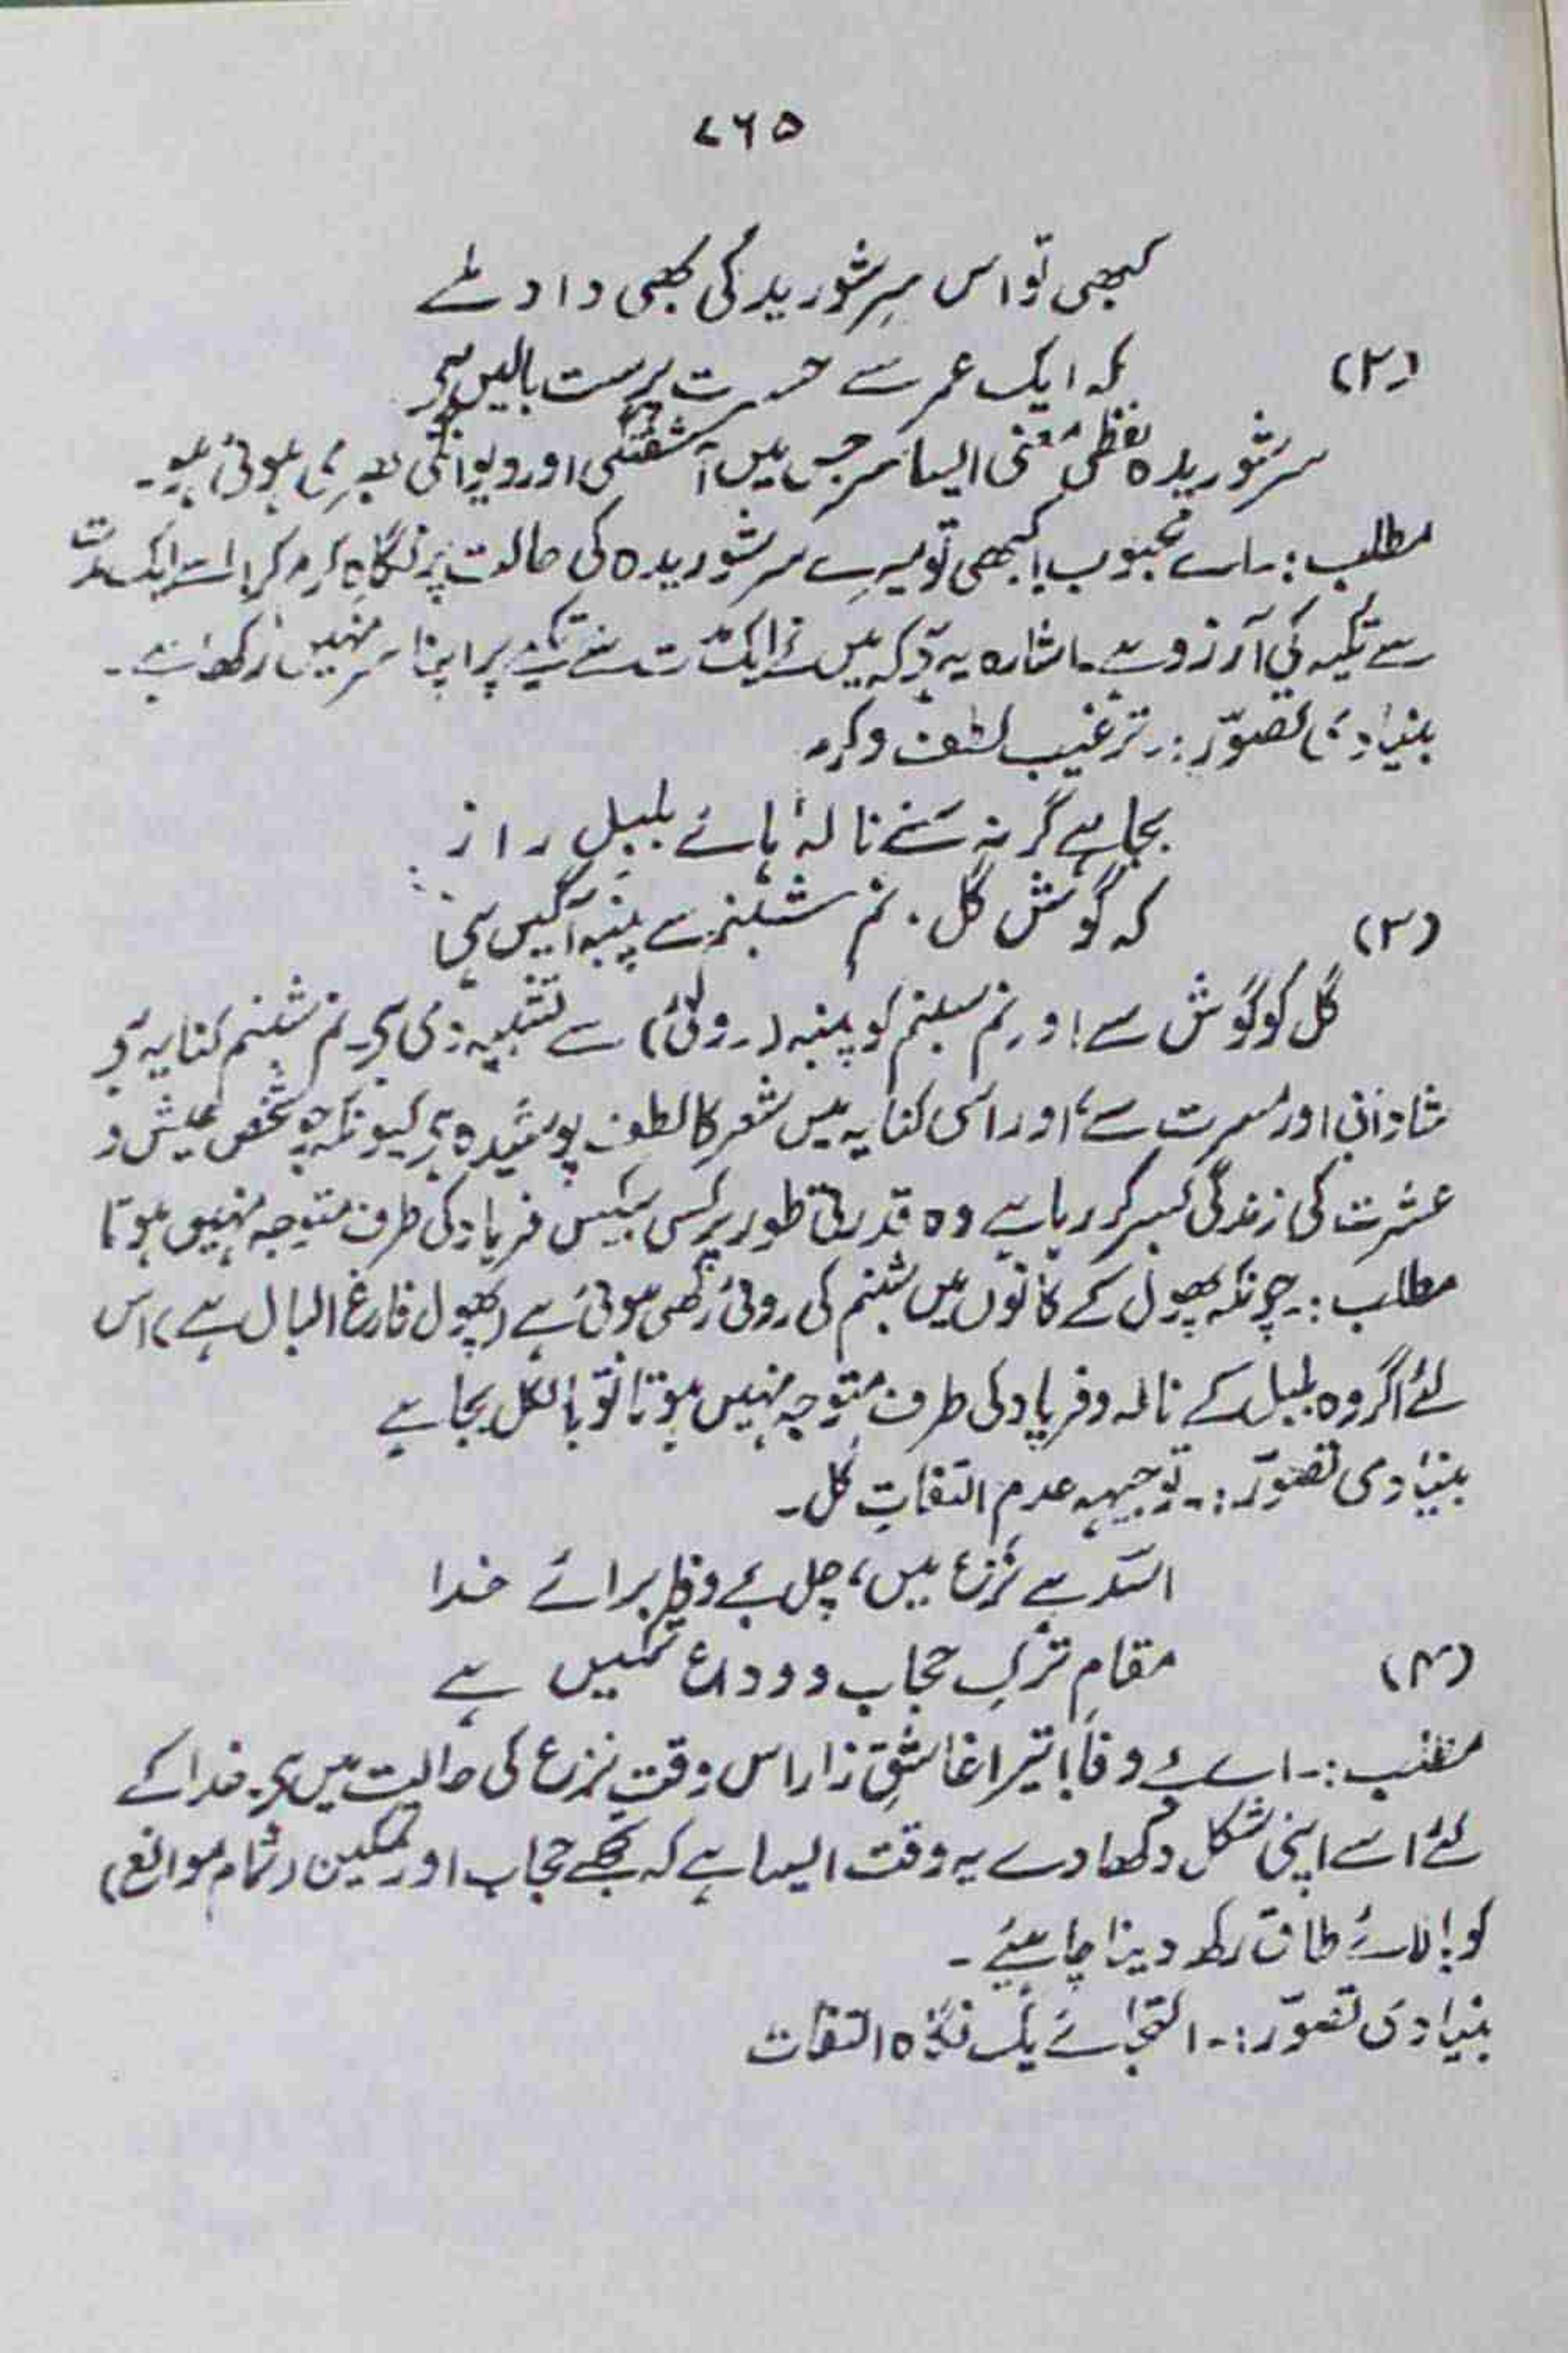 ۷۶۵
کبھی تو اس سرِ شوریدہ کی بھی داد ملے
(۲) کہ ایک عمر سے حسرت پرست بالیں ہے
سرِ شوریدہ لفظی معنی ایسا سر جس میں آشفتگی اور دیوانگی بھری ہوئی ہو۔
مطلب:۔ اے محبوب! کبھی تو میرے سرِ شوریدہ کی حالت پر نگاہِ کرم کر! اسے ایک مدت
سے تکیہ کی آرزو ہے۔ اشارہ یہ ہے کہ میں نے ایک مدت سے تکیے پر اپنا سر نہیں رکھا ہے۔
بنیادی تصوّر:۔ ترغیب لطف و کرم
بجا ہے گر نہ سُنے نالہ ہائے بلبلِ زار
(۳) کہ گوش گل، نم شبنم سے پنبہ آگیں ہے
گل کو گوش سے اور نم شبنم کو پنبہ (روئی) سے تشبیہ دی ہے۔ نم شبنم کنایہ ہے
شادمانی اور مسرت سے، اور اسی کنایہ میں شعر کا لطف پوشیدہ ہے کیونکہ جو شخص عیش و
عشرت کی زندگی بسر کر رہا ہے وہ قدرتی طور پر کسی بیکس فریاد کی طرف متوجہ نہیں ہوتا
مطلب:۔ چونکہ پھول کے کانوں میں شبنم کی روئی رکھی ہوئی ہے (پھول فارغ البال ہے) اس
لئے اگر وہ بلبل کے نالہ و فریاد کی طرف متوجہ نہیں ہوتا تو بالکل بجا ہے
بنیادی تصوّر:۔ توجیہہ عدم التفاتِ گل۔
اسدؔ ہے نزع میں، چل بے وفا برائے خدا
(۴) مقامِ ترکِ حجاب و وداعِ تمکیں ہے
مطلب:۔ اے بے وفا! تیرا عاشقِ زار اس وقت نزع کی حالت میں ہے۔ خدا کے
لئے اسے اپنی شکل دکھا دے یہ وقت ایسا ہے کہ تجھے حجاب اور تمکین (تمام موانع)
کو بالائے طاق رکھ دینا چاہیئے۔
بنیادی تصوّر:۔ التجائے یک نگاہ التفات